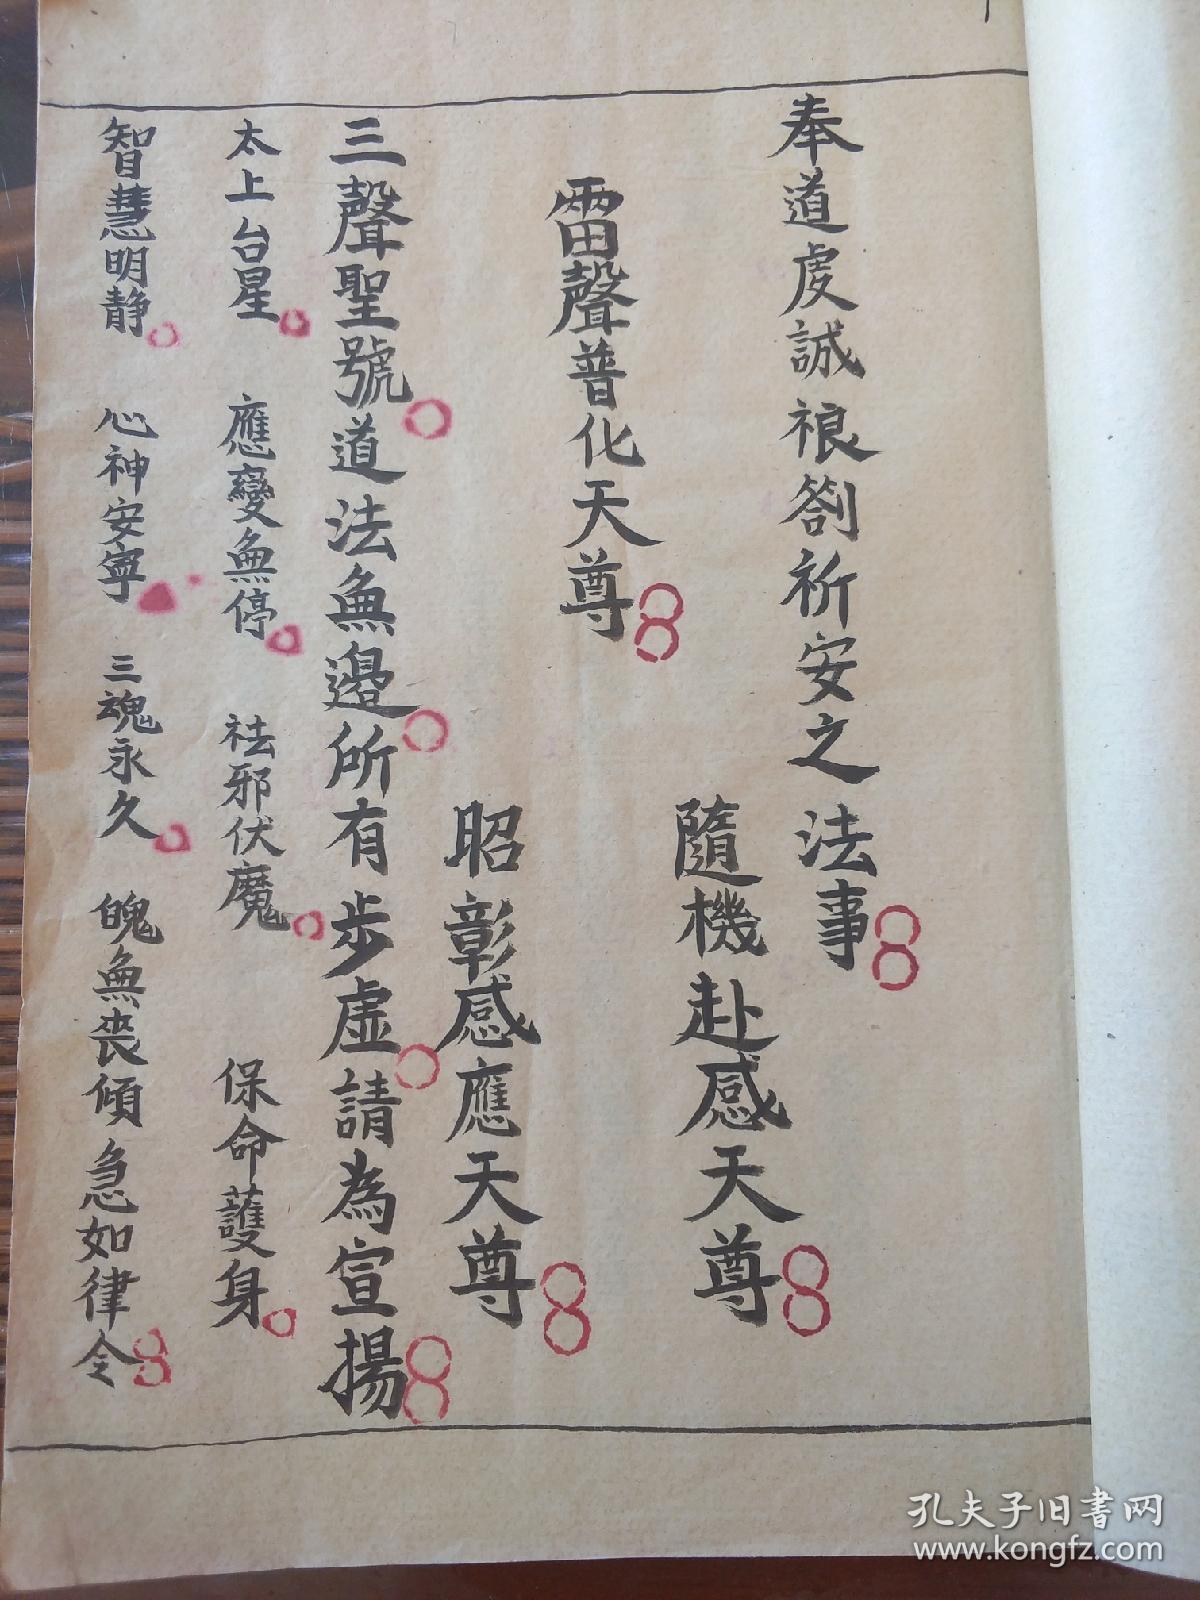 奉道虔誠祈安之法事
隨機赴感天尊
雷聲普化天尊
昭彰感應天尊
三聲聖號道法無邊所有步虛請為宣揚
太上台星 應變無停 祛邪伏魔 保命護身
智慧明靜 心神安寧 三魂永久 魄無喪傾急如律令
孔夫子旧书网
www.kongfz.com